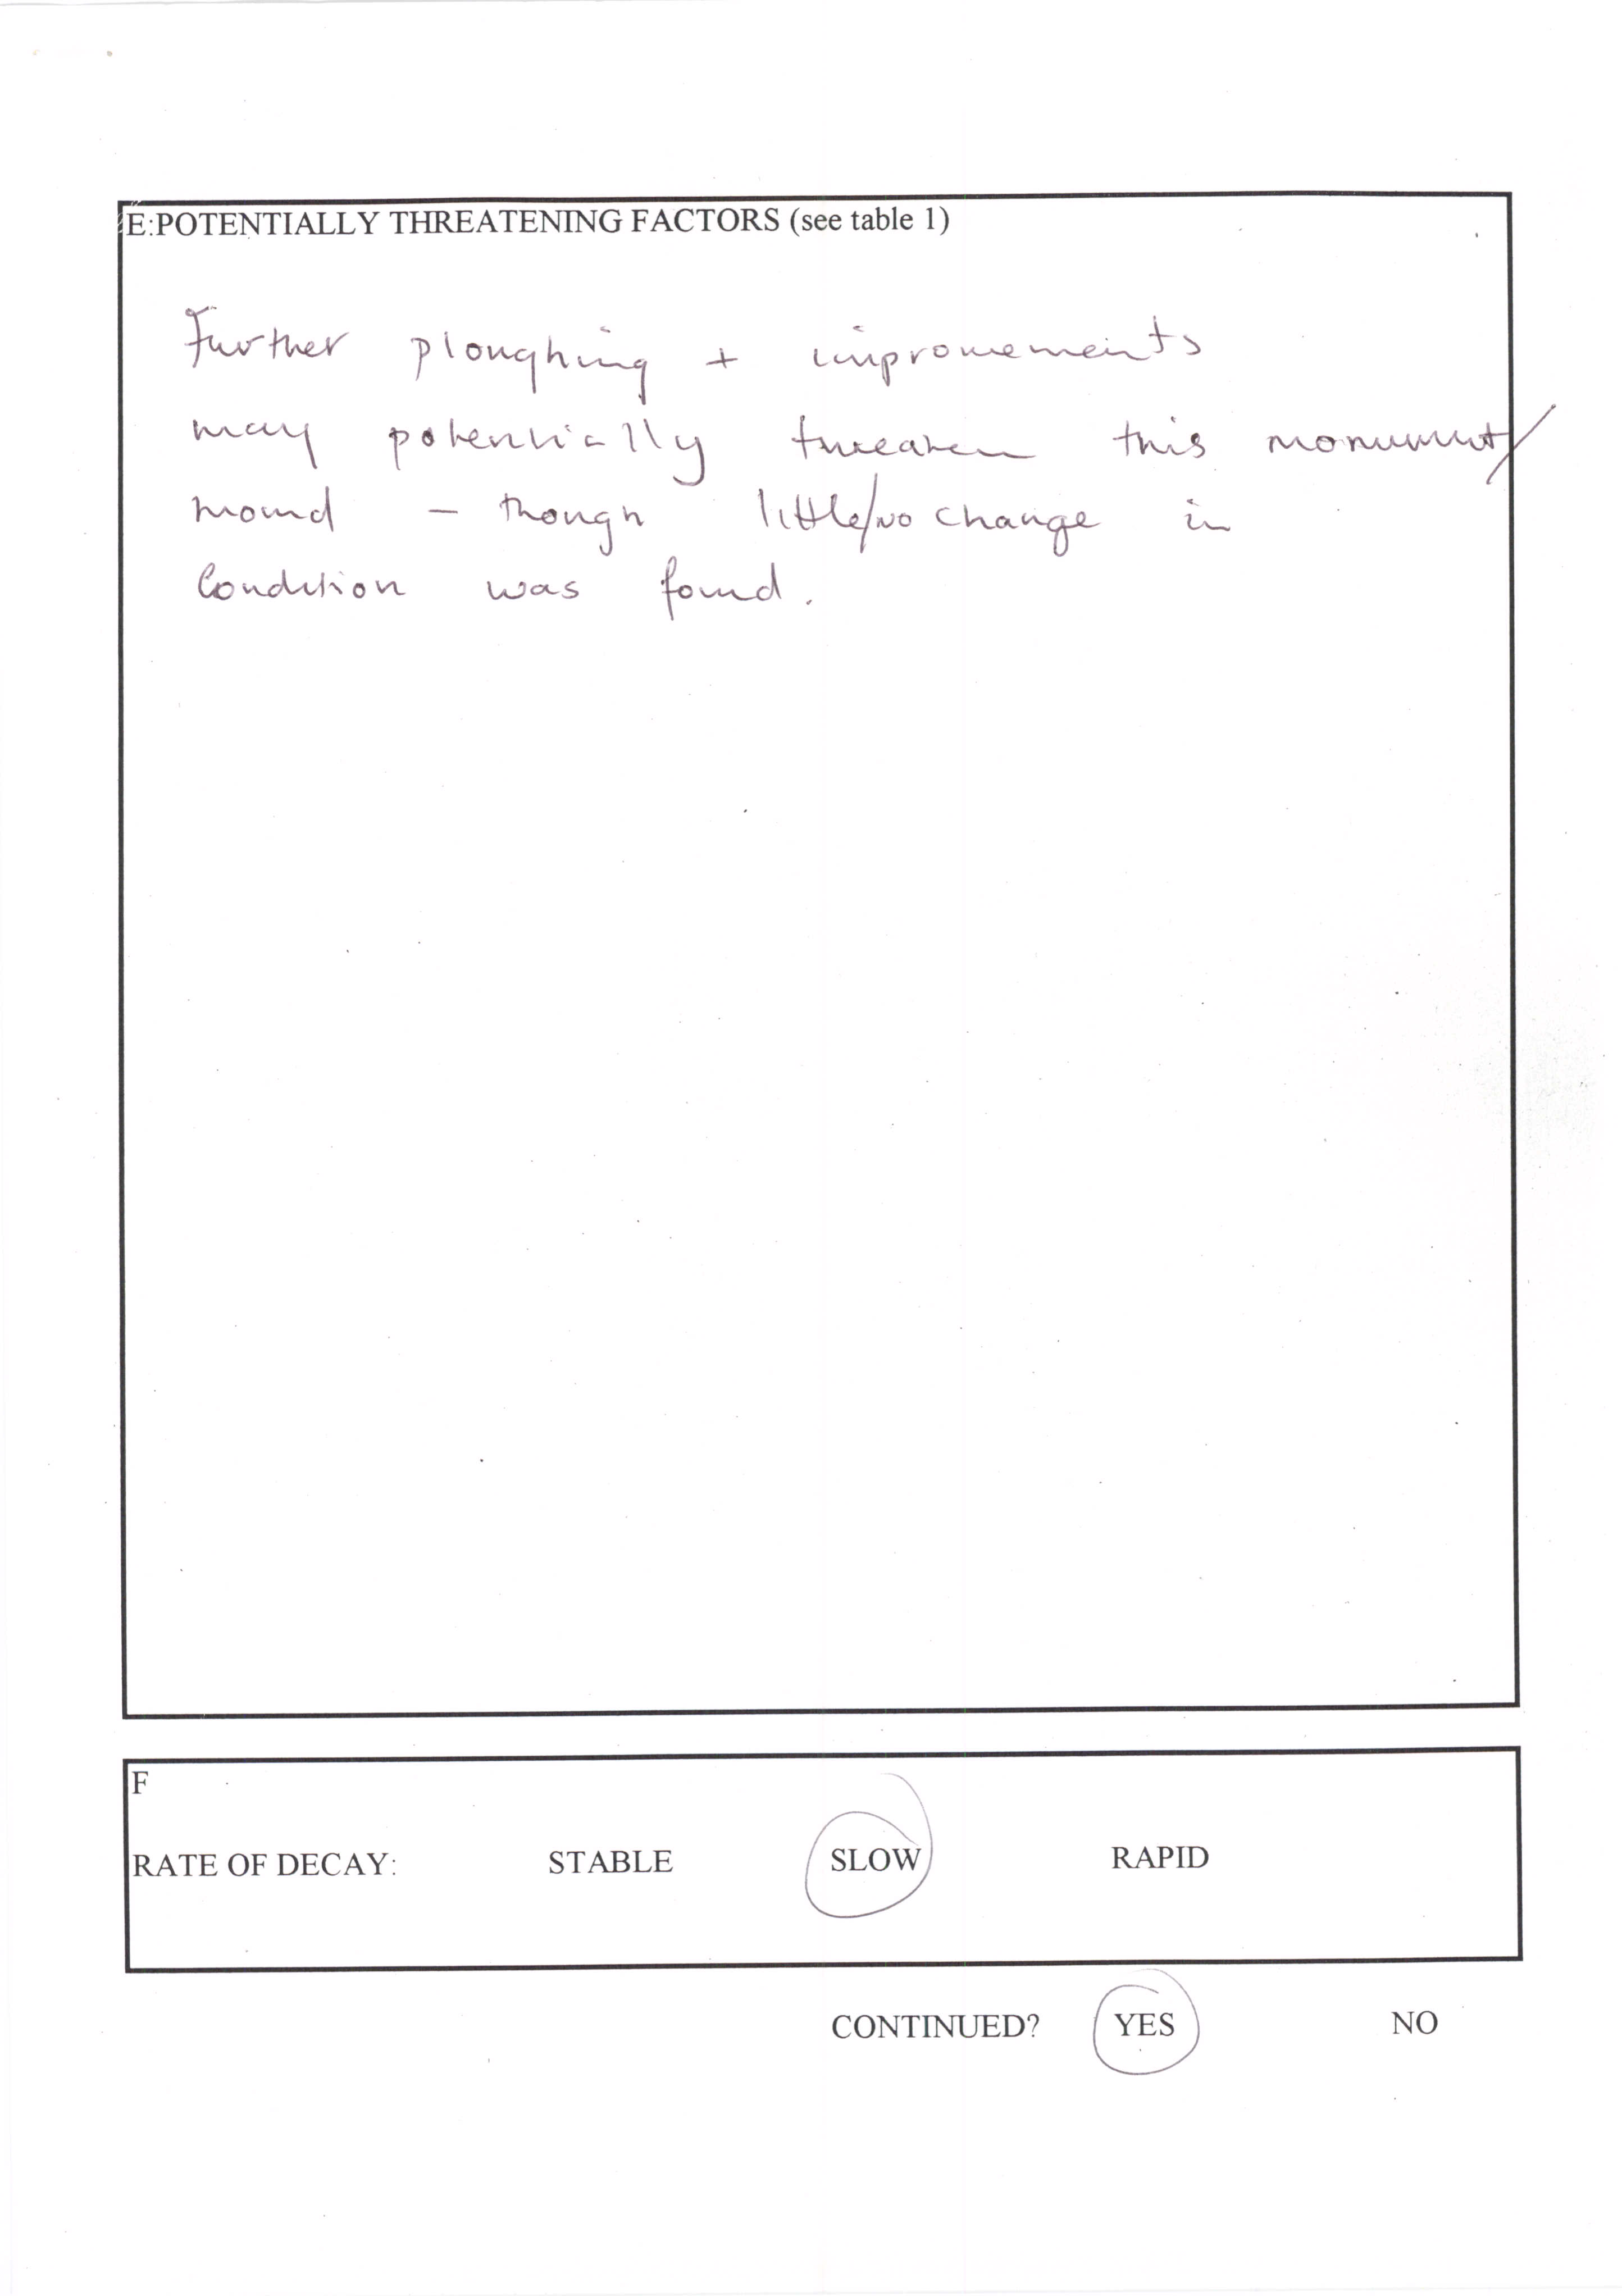 E:POTENTIALLY THREATENING FACTORS (see table 1)
Further ploughing + improvements
may potentially threaten this monument/
mound - though little/no change in
Condition was found.
F
RATE OF DECAY: STABLE SLOW RAPID
CONTINUED? YES NO